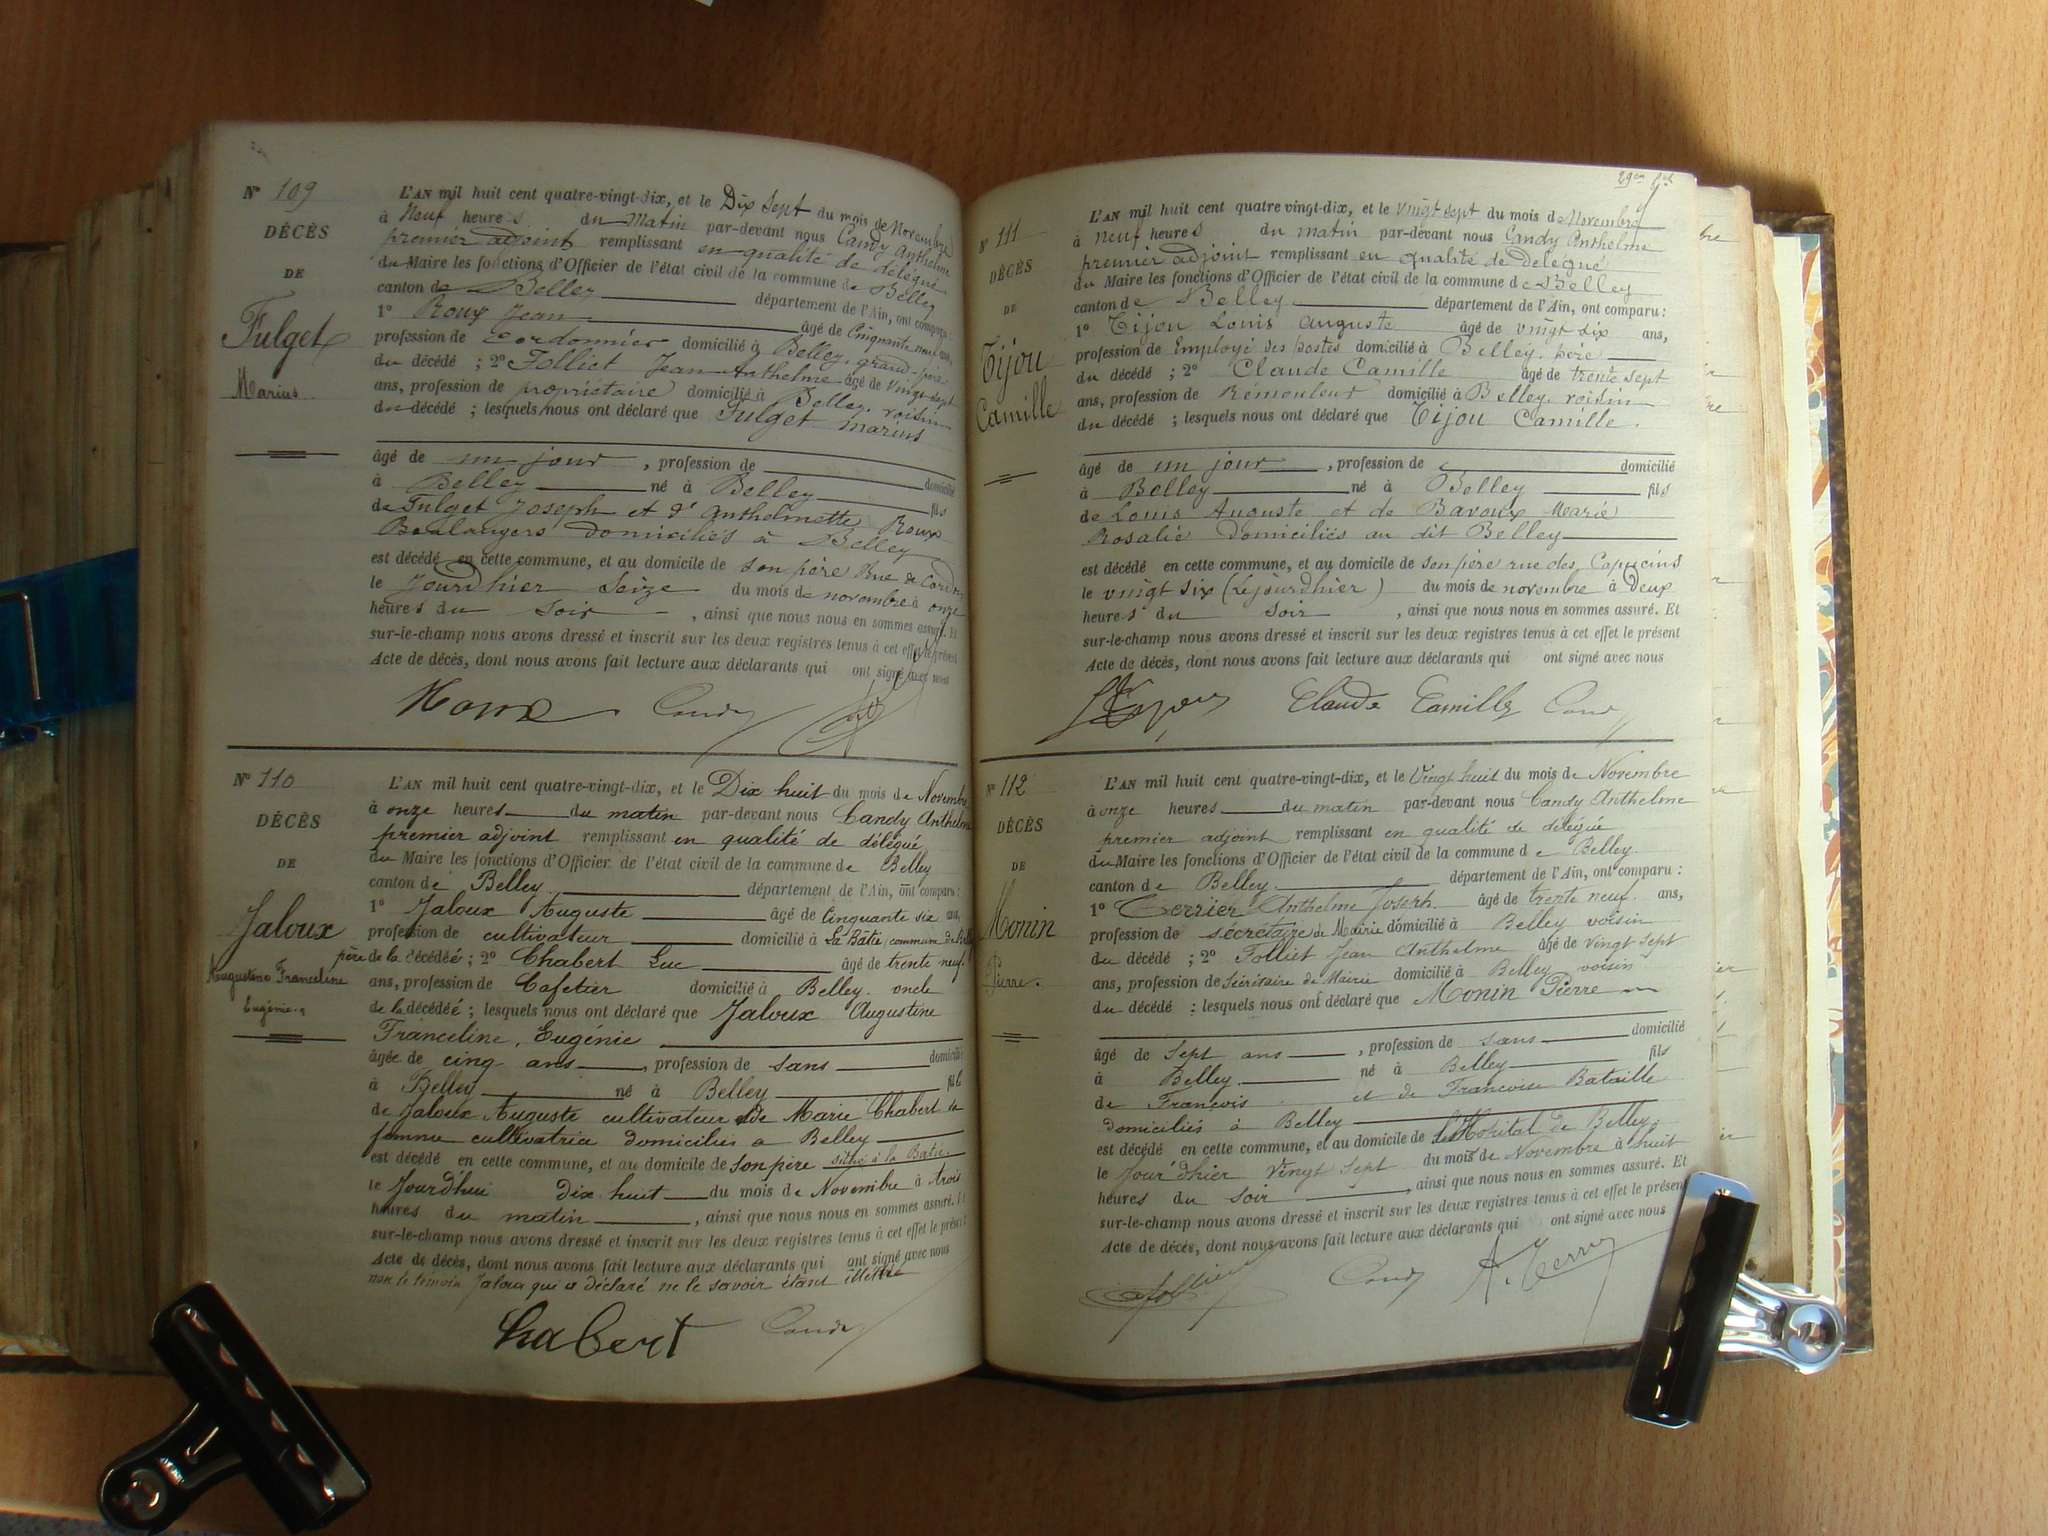 N° 109
DÉCÈS
DE
Fulget
Marius
L'AN mil huit cent quatre-vingt-dix, et le Dix sept du mois de Novembre
à Neuf heures du matin par-devant nous Candy Anthelme
premier adjoint remplissant en qualité de délégué
du Maire les fonctions d'Officier de l'état civil de la commune de Belley
canton de Belley département de l'Ain, ont comparu :
1° Roux Jean âgé de Cinquante neuf ans,
profession de Cordonnier domicilié à Belley, grand-père
du décédé ; 2° Folliet Jean Anthelme âgé de vingt sept
ans, profession de propriétaire domicilié à Belley, voisin
du décédé ; lesquels nous ont déclaré que Fulget Marius
âgé de un jour, profession de domicilié
à Belley né à Belley fils
de Fulget Joseph et d'Anthelmette Roux
Boulangers domiciliés à Belley
est décédé en cette commune, et au domicile de son père Rue de
le jourdhier Seize du mois de novembre à onze
heures du soir, ainsi que nous nous en sommes assuré. Et
sur-le-champ nous avons dressé et inscrit sur les deux registres tenus à cet effet le présent
Acte de décès, dont nous avons fait lecture aux déclarants qui ont signé avec nous
Roux Candy
N° 110
DÉCÈS
DE
Jaloux
Augustine Franceline
Eugénie
L'AN mil huit cent quatre-vingt-dix, et le Dix huit du mois de Novembre
à onze heures du matin par-devant nous Candy Anthelme
premier adjoint remplissant en qualité de délégué
du Maire les fonctions d'Officier de l'état civil de la commune de Belley
canton de Belley département de l'Ain, ont comparu :
1° Jaloux Auguste âgé de Cinquante six ans,
profession de cultivateur domicilié à La Bâtie, commune de
père de la décédée ; 2° Chabert Luc âgé de trente neuf
ans, profession de Cafetier domicilié à Belley oncle
de la décédée ; lesquels nous ont déclaré que Jaloux Augustine
Franceline, Eugénie
âgée de cinq ans, profession de sans domicilié
à Belley né à Belley fille
de Jaloux Auguste cultivateur & de Marie Chabert sa
femme cultivatrice domiciliés a Belley
est décédé en cette commune, et au domicile de son père sithé à la Batie
le Jourdhui dix huit du mois de Novembre à trois
heures du matin, ainsi que nous nous en sommes assuré. Et
sur-le-champ nous avons dressé et inscrit sur les deux registres tenus à cet effet le présent
Acte de décès, dont nous avons fait lecture aux déclarants qui ont signé avec nous
non le témoin Jaloux qui a déclaré ne le savoir étant illétré
Chabert Candy
N° 111
DÉCÈS
DE
Tijou
Camille
L'AN mil huit cent quatre vingt-dix, et le vingt sept du mois de Novembre
à neuf heures du matin par-devant nous Candy Anthelme
premier adjoint remplissant en qualité de Delégué
du Maire les fonctions d'Officier de l'état civil de la commune de Belley
canton de Belley département de l'Ain, ont comparu :
1° Tijou Louis Auguste âgé de vingt six ans,
profession de Employé des postes domicilié à Belley, père
du décédé ; 2° Claude Camille âgé de trente sept
ans, profession de Rémouleur domicilié à Belley, voisin
du décédé ; lesquels nous ont déclaré que Tijou Camille.
âgé de un jour, profession de domicilié
à Belley né à Belley fils
de Louis Auguste et de Bavoux Marie
Rosalie Domiciliés au dit Belley
est décédé en cette commune, et au domicile de son père rue des Capucins
le vingt six (lejourdhier) du mois de novembre à Deux
heures du soir, ainsi que nous nous en sommes assuré. Et
sur-le-champ nous avons dressé et inscrit sur les deux registres tenus à cet effet le présent
Acte de décès, dont nous avons fait lecture aux déclarants qui ont signé avec nous
Claude Camille Candy
N° 112
DÉCÈS
DE
Monin
Pierre.
L'AN mil huit cent quatre-vingt-dix, et le Vingt huit du mois de Novembre
à onze heures du matin par-devant nous Candy Anthelme
premier adjoint remplissant en qualité de délégué
du Maire les fonctions d'Officier de l'état civil de la commune de Belley.
canton de Belley département de l'Ain, ont comparu :
1° Terrier Anthelme Joseph âgé de trente neuf ans,
profession de sécrétaire de Mairie domicilié à Belley voisin
du décédé ; 2° Folliet Jean Anthelme âgé de vingt sept
ans, profession de Sécrétaire de Mairie domicilié à Belley voisin
du décédé : lesquels nous ont déclaré que Monin Pierre
âgé de Sept ans, profession de sans domicilié
à Belley né à Belley fils
de François et de Francoise Bataille
domiciliés à Belley
est décédé en cette commune, et au domicile de l'Hopital de Belley
le Jour'dhier Vingt Sept du mois de Novembre à huit
heures du soir, ainsi que nous nous en sommes assuré. Et
sur-le-champ nous avons dressé et inscrit sur les deux registres tenus à cet effet le présent
Acte de décès, dont nous avons fait lecture aux déclarants qui ont signé avec nous
Folliet Candy A. Terrier